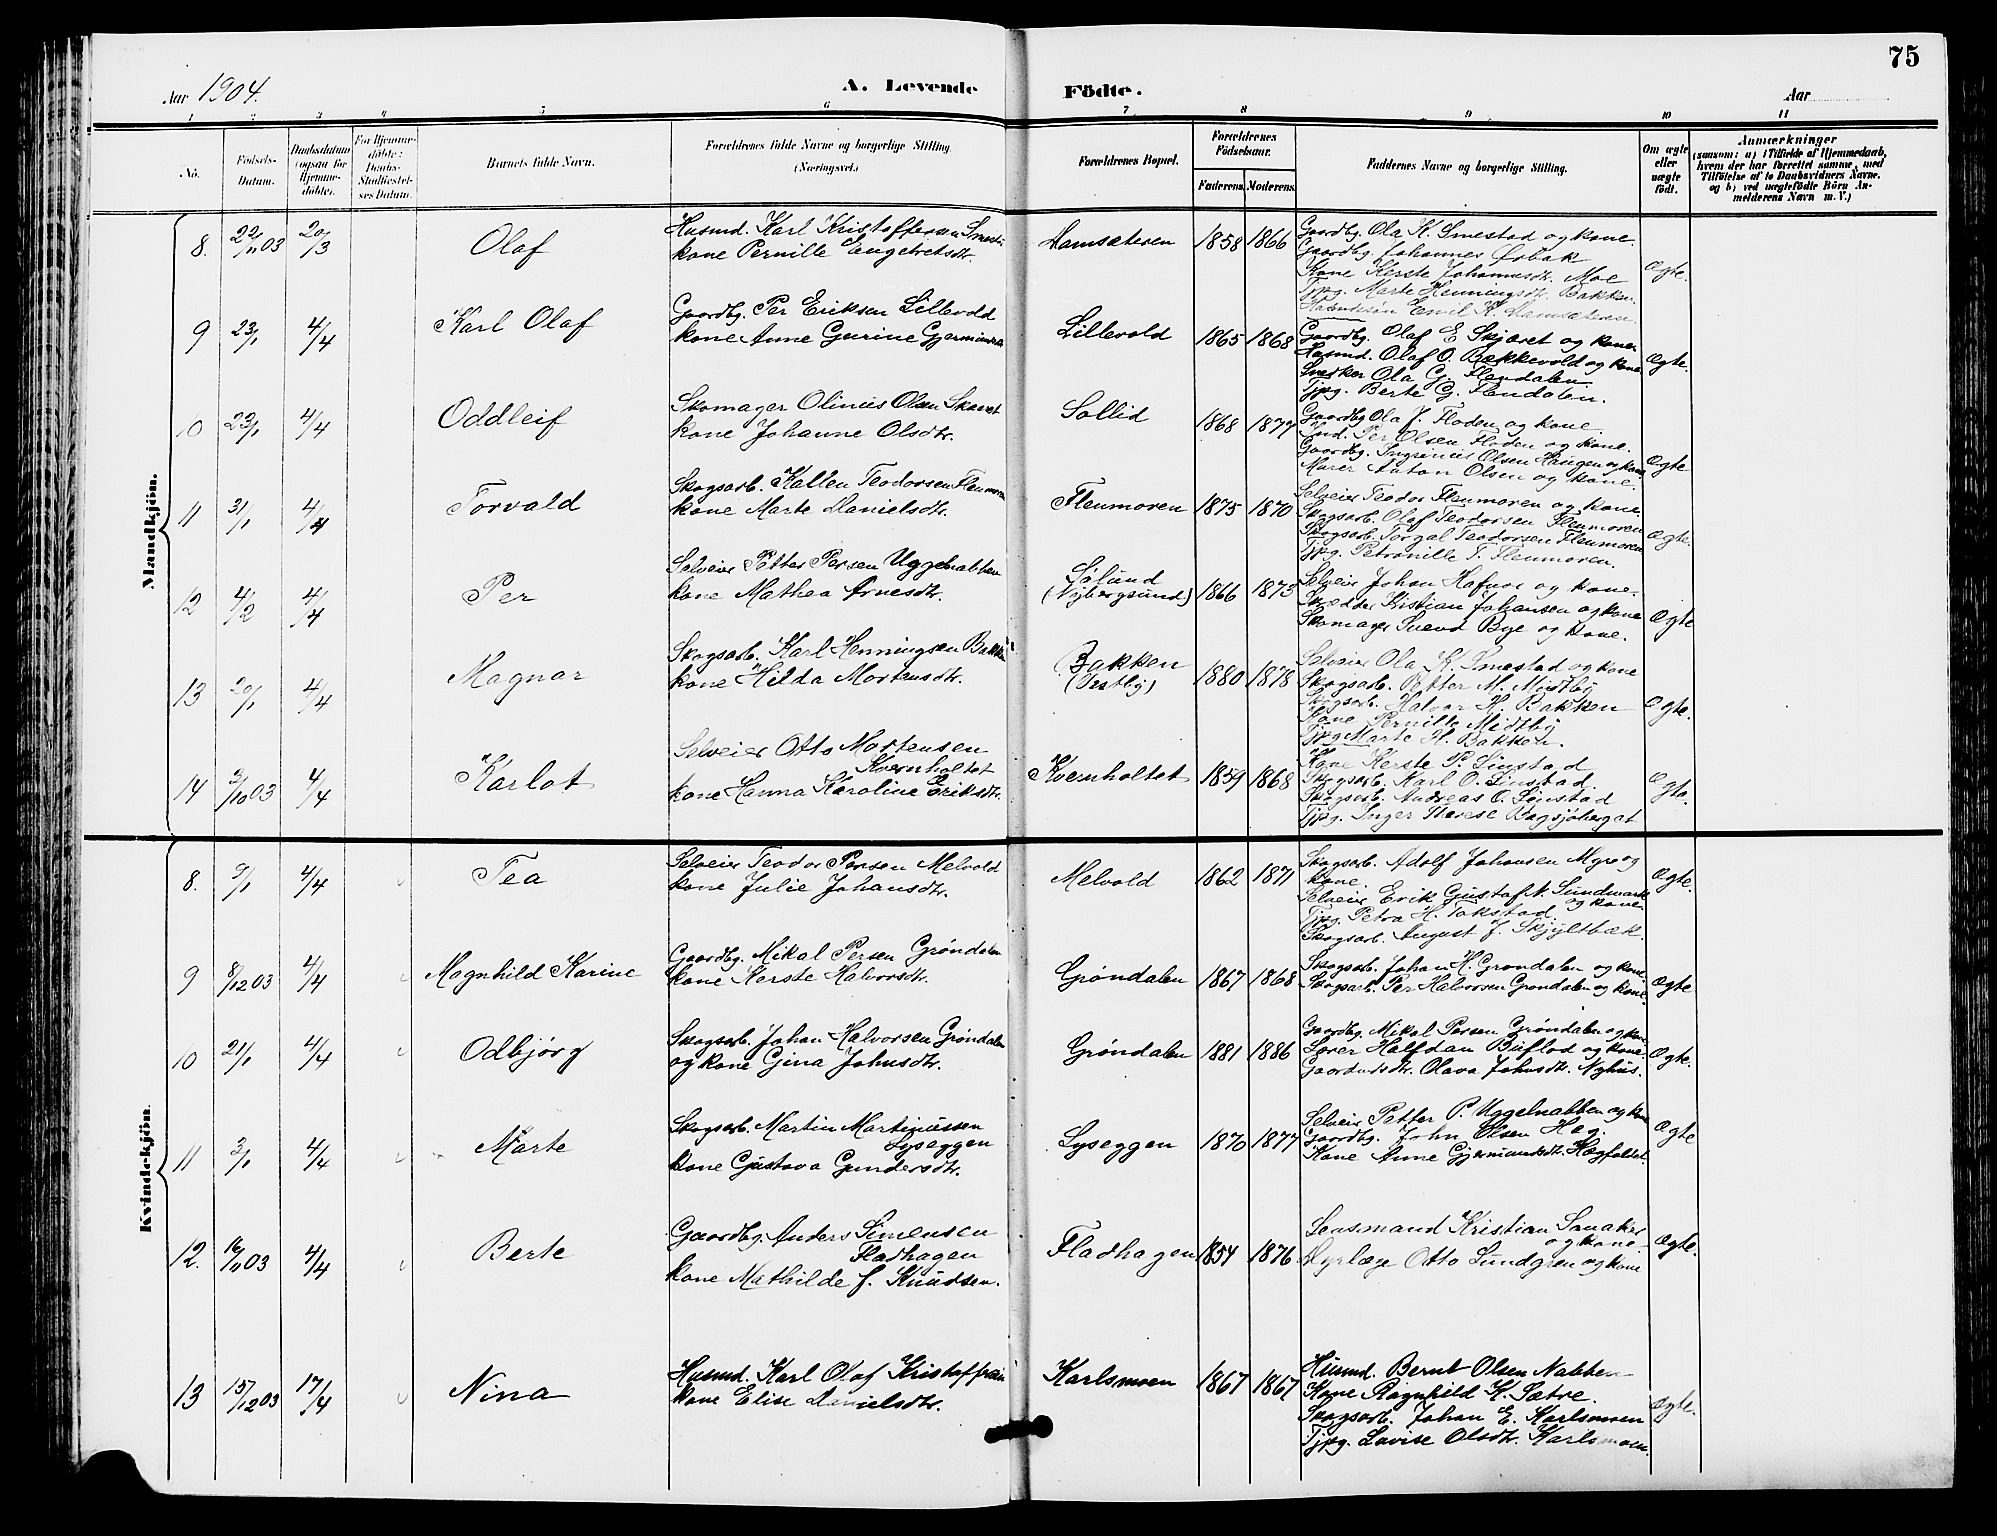 75
Aar 1904.
A. Levende Födte.
Aar
1 2 3 4 5 6 7 8 9 10 11
No.
Födsels-Datum.
Daabsdatum (ogsaa for Hjemmedöbte).
For Hjemmedöbte: Daabs-Stadfæstelses Datum.
Barnets fulde Navn.
Forældrenes fulde Navne og borgerlige Stilling (Næringsvei.)
Forældrenes Bopæl.
Forældrenes Födselsaar.
Faderens. Moderens.
Faddernes Navne og borgerlige Stilling.
Om ægte eller uægte födt.
Anmærkninger
(saasom: a) i Tilfælde af Hjemmedaab, hvem der har forrettet samme, med Tilföielse af to Daabsvidners Navne, og b) ved uægtefödte Börn Anmelderens Navn m. V.)
Mandkjön.
8. 22/11 03 20/3 Olaf
Husmd. Karl Kristoffersen
kone Pernille Engebretsdtr.
Damsæteren 1858 1866
Gaardbg. Ola K. Smestad og kone.
Gaardbg. Johannes
Kone Kerste Johannesdtr. Moe
Tjpg. Marte Henningsdtr. Bakken.
Emil K. Damsæteren.
Ægte.
9 23/1 4/4 Karl Olaf
Gaardbg. Per Eriksen Lillevold
kone Anne Gurine
Lillevold 1865 1868
Gaardbg. Olaf E. Skjæret og kone
Husmd. Olaf O. Bækkevold og kone
Snekker Ola G. Flendalen.
Tjpg. Berte G. Flendalen.
Ægte.
10 23/1 4/4 Oddleif
Skomager Olinius Olsen
kone Johanne Olsdtr.
Sollid 1868 1877
Gaardbg Ola J. Floden og kone.
Ind. Per Olsen Floden og kone.
Gaardbg. Olsen Haugen og kone
Murer Anton Olsen og kone.
Ægte
11 31/1 4/4 Torvald
Skogsarb. Kallen Teodorsen Flenmoren
kone Marte Danielsdtr.
Flenmoren 1875 1870
Selveier Teodor Flenmoren og kone
Skogsarb. Olaf Teodorsen Flenmoren
Skogsarb. Torgal Teodorsen Flenmoren
Tjpg. Petronille T. Flenmoren.
Ægte.
12 4/2 4/4 Per
Selveier Petter Persen Uggelnabben
kone Mathea Arnesdtr.
Sølund
(Nybergsund) 1866 1873
Selveier Johan Hafnor og kone.
Skrædder Kristian Johansen og kone
Skomager Svend Bye og kone.
Ægte
13 20/1 4/4 Magnar
Skogsarb. Karl Henningsen Bakken
kone Hilda Mortensdtr.
Bakken
(Østby) 1880 1878
Selveier Ola K. Smestad og kone
Skogsarb. Petter M. Midtby
Skogsarb. Halvor H. Bakken
Kone Pernille Midtby
Tjpg Marte H. Bakken.
Ægte.
14 3/10 03 4/4 Karlot
Selveier Otto Mortensen
Kvernholtet
kone Hanna Karoline Eriksdtr.
Kvernholtet 1859 1868
Kone Kerste P. Linstad
Skogsarb. Karl O. Linstad.
Skogsarb. Andreas O. Linstad
Tjpg. Inger Therese Bogsjøberget
Ægte.
Kvindekjön.
8. 9/1 4/4 Tea
Selveier Teodor Persen Melvold
kone Julie Johansdtr.
Melvold 1862 1871
Skogsarb. Adolf Johansen Myre og
kone.
Selveier Erik Gustaf N. Sundmark
og kone.
Tjpg. Petra H. Takstad
Skogsarb. August J. Skjyltbæk.
Ægte.
9 8/12 03 4/4 Magnhild Karine
Gaardbg. Mikal Persen Grøndalen
kone Kerste Halvorsdtr.
Grøndalen 1867 1868
Skogsarb. Johan H. Grøndalen og kone
Skogsarb. Per Halvorsen Grøndalen og kone.
Ægte
10 21/1 4/4 Odbjørg
Skogsarb. Johan Halvorsen Grøndalen
og kone Gina Johnsdtr.
Grøndalen 1881 1886
Gaardbg. Mikal Persen Grøndalen og kone
Lærer Halfdan Buflod og kone
Olava Johnsdtr. Nyhus.
Ægte.
11 3/1 4/4 Marte
Skogsarb. Martin Martinussen
Lyseggen
kone Gustava Gundersdtr.
Lyseggen 1870 1877
Selveier Petter P. Uggelnabben og kone
Gaardbg. John Olsen Hæg.
Kone Anne Gjermundsdtr. Hægfaldet.
Ægte
12. 16/11 03 4/4 Berte
Gaardbg. Anders Simensen
Fladhagen
kone Mathilde f. Knudsen.
Fladhagen 1854 1876
Lensmand Kristian Sanaker
og kone.
Dyrlæge Otto Sundgren og kone
Ægte.
13 15/12 03 17/4 Nina
Husmd. Karl Olaf Kristoffersen
kone Elise Danielsdtr.
Karlsmoen 1867 1867
Husmd. Bernt Olsen Nabben
Kone Ragnhild K. Sætre.
Skogsarb. Johan E. Karlsmoen
Tjpg. Lovise Olsdtr. Karlsmoen.
Ægte.